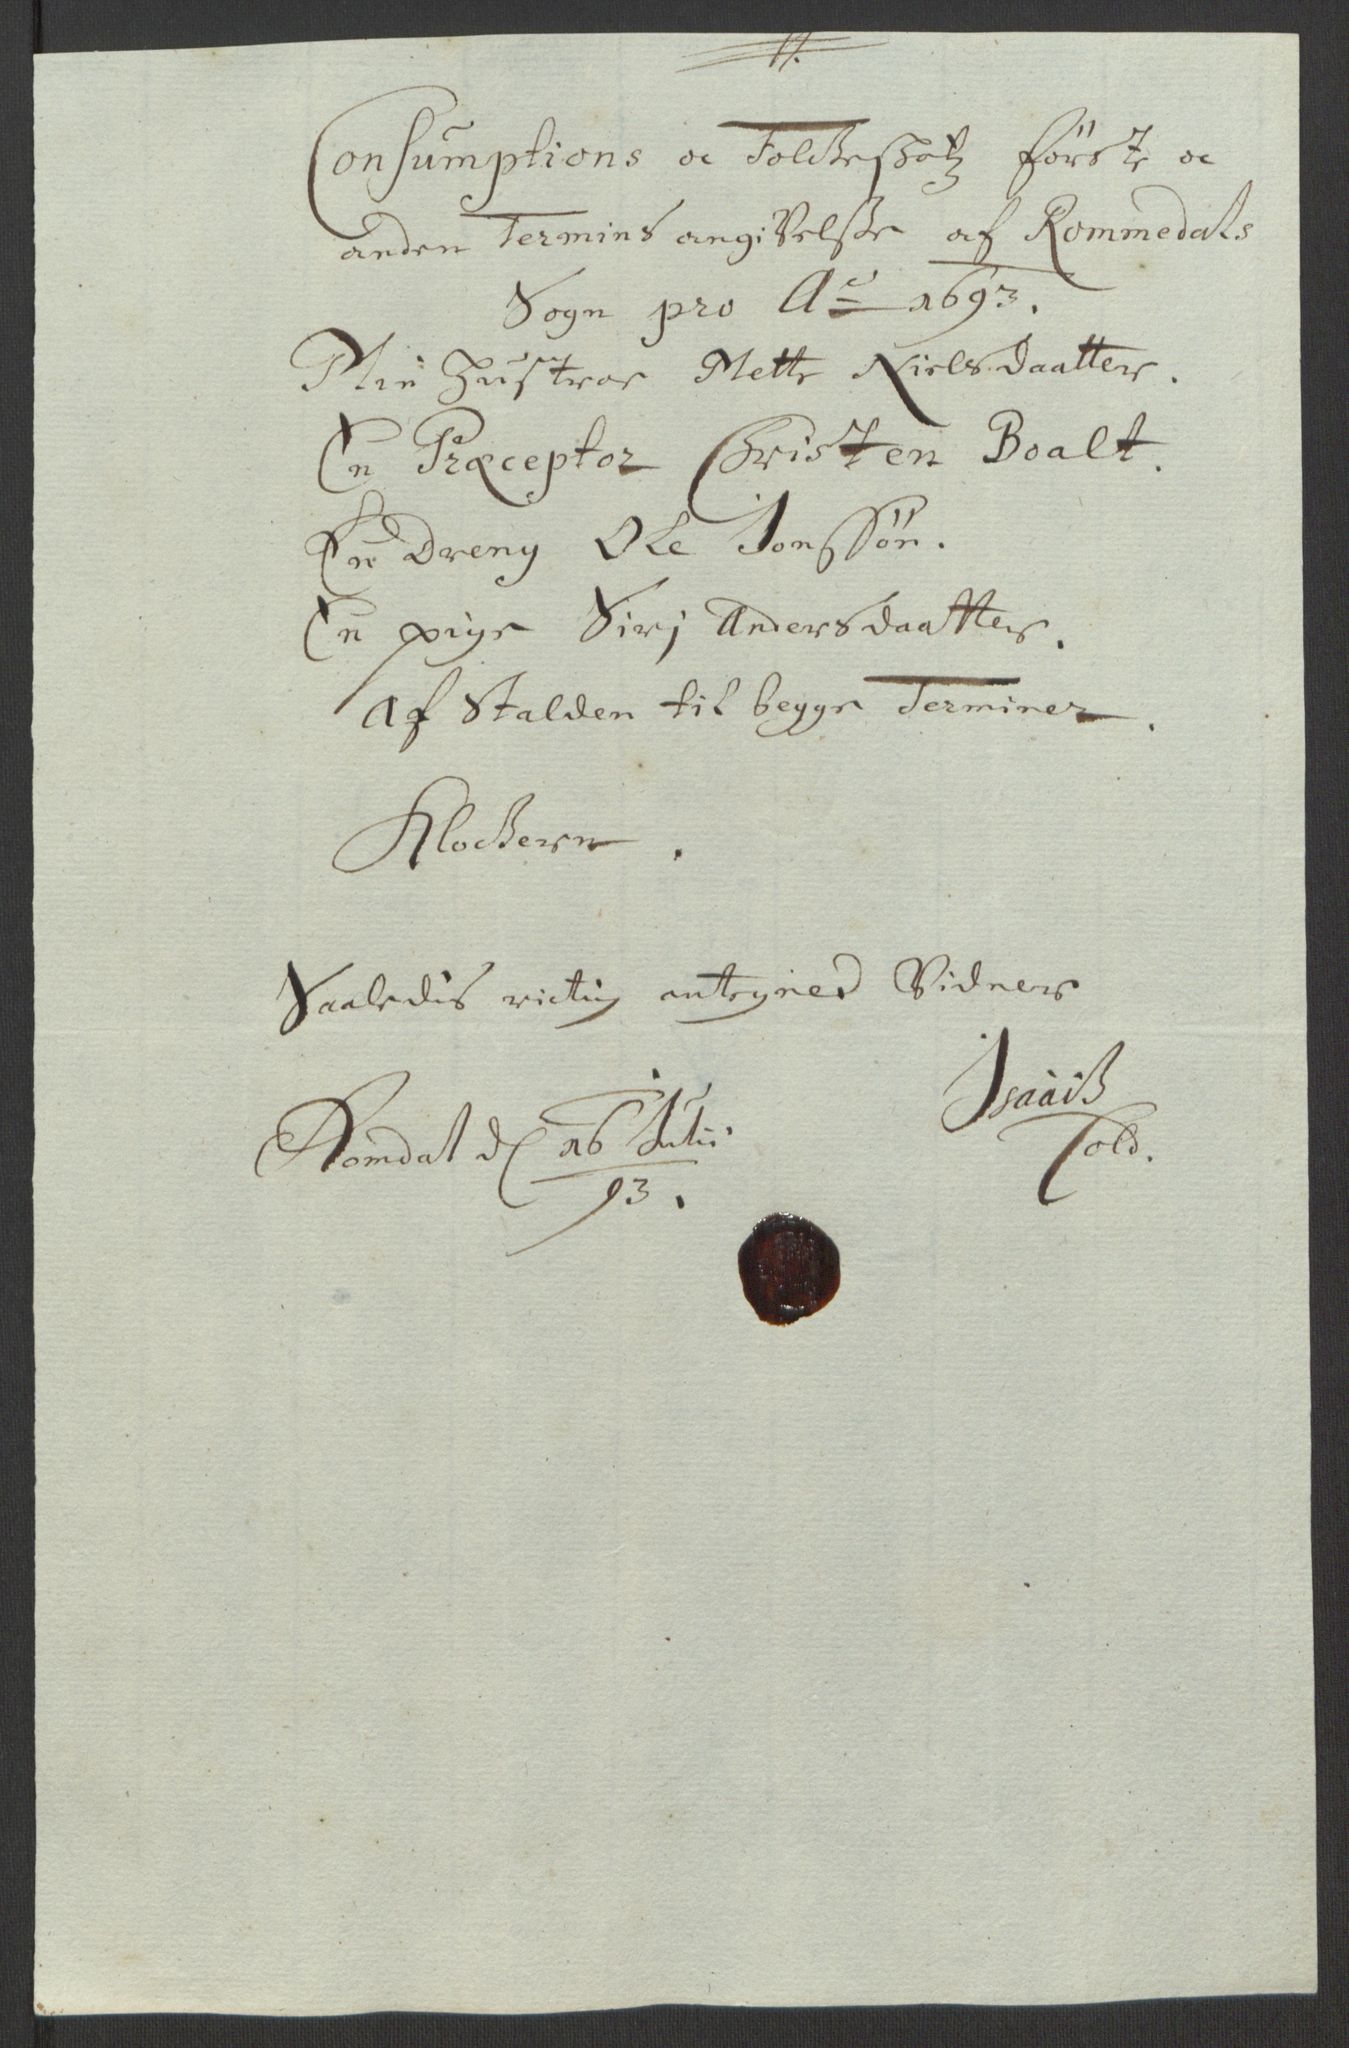 Consumptions oc Folcheschatz förste oc
anden Termins angivelsse af Rommedals
Sogn pro Ao 1693.
Min Hustroe Mette Nielsdaatter.
En Præceptor Christen Boalt.
En Dreng Ole Jonssön.
En pige Sirj Andersdaatter.
Af Stalden til begge Terminer.
Klockeren.
Saaledis rictig antegned Vidner
Isaach
Romdal d 16 Julii
Cold.
93.